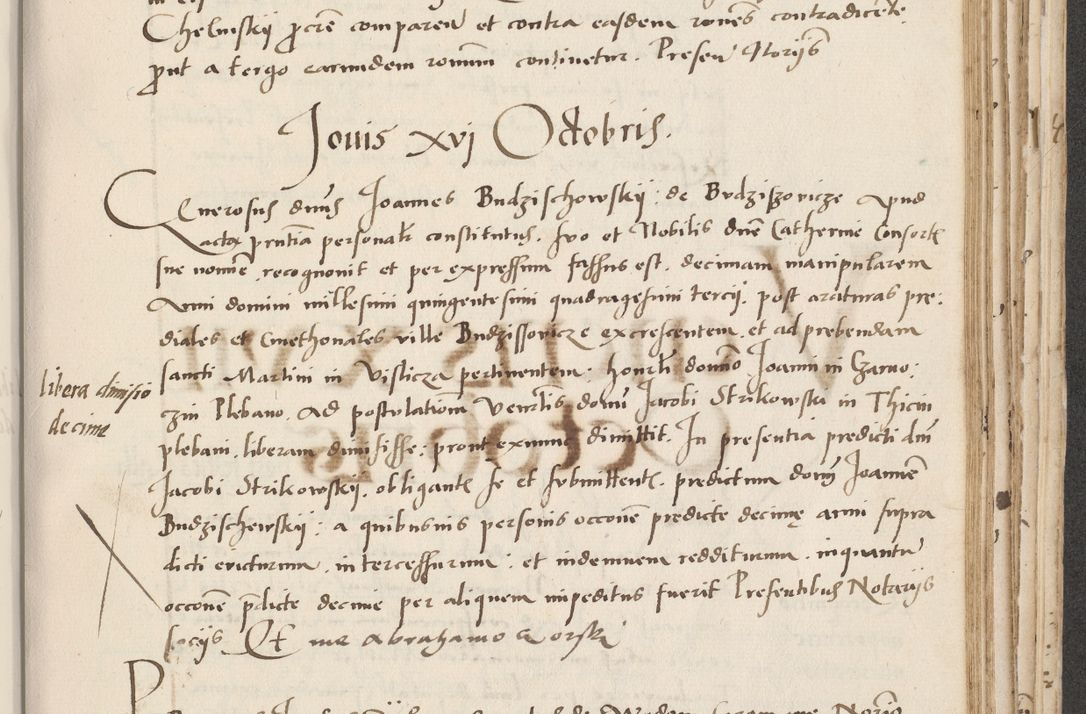 Chelmskÿ ꝓcr̃e comparen̄ et contra easdem rōnes contradicēte
ꝓut a tergo earundem ronum̄ continetur. Presen̄ Norÿs
Jouis xvj Octobris.
Generosus dn̄us Joannes Budzischowskÿ: de Budzisszovicze Apud
acta pn̄tia personalr̄ constitutus. suo et Nobilis dn̄e Catherine Consortis
sue nomīe recognouit et per expressum fassus est. decimam manipularem
Anni domini millesimi quingentesimi quadragesimi tercÿ. post araturas pre:
diales et Cmethonales ville Budzissovicze excrescentem. et ad prebendam
sancti Martini in Vislicza pertinentem: honorli domīo Joanni in Czarno:
czin Plebano. ad postulationem Venerlis domī Jacobi Strikowski in Thicin
plebani. liberam dimisisse: prout exnunc dimittit. In presentia predicti dn̄i
Jacobi Strikowskÿ. obligantis se et submittentis. predictum domī Joannem
Budzischewskÿ: a quibusuis personis occōne predicte decimę anni supra
dicti evicturum. intercessurum: et indemnem redditurum. inquantū
occōne p̄dicte decimę per aliquem impeditus fuerit Presentibus Notarÿs
socÿs Et me Abrahamo Gorski
libera dimisio
decime